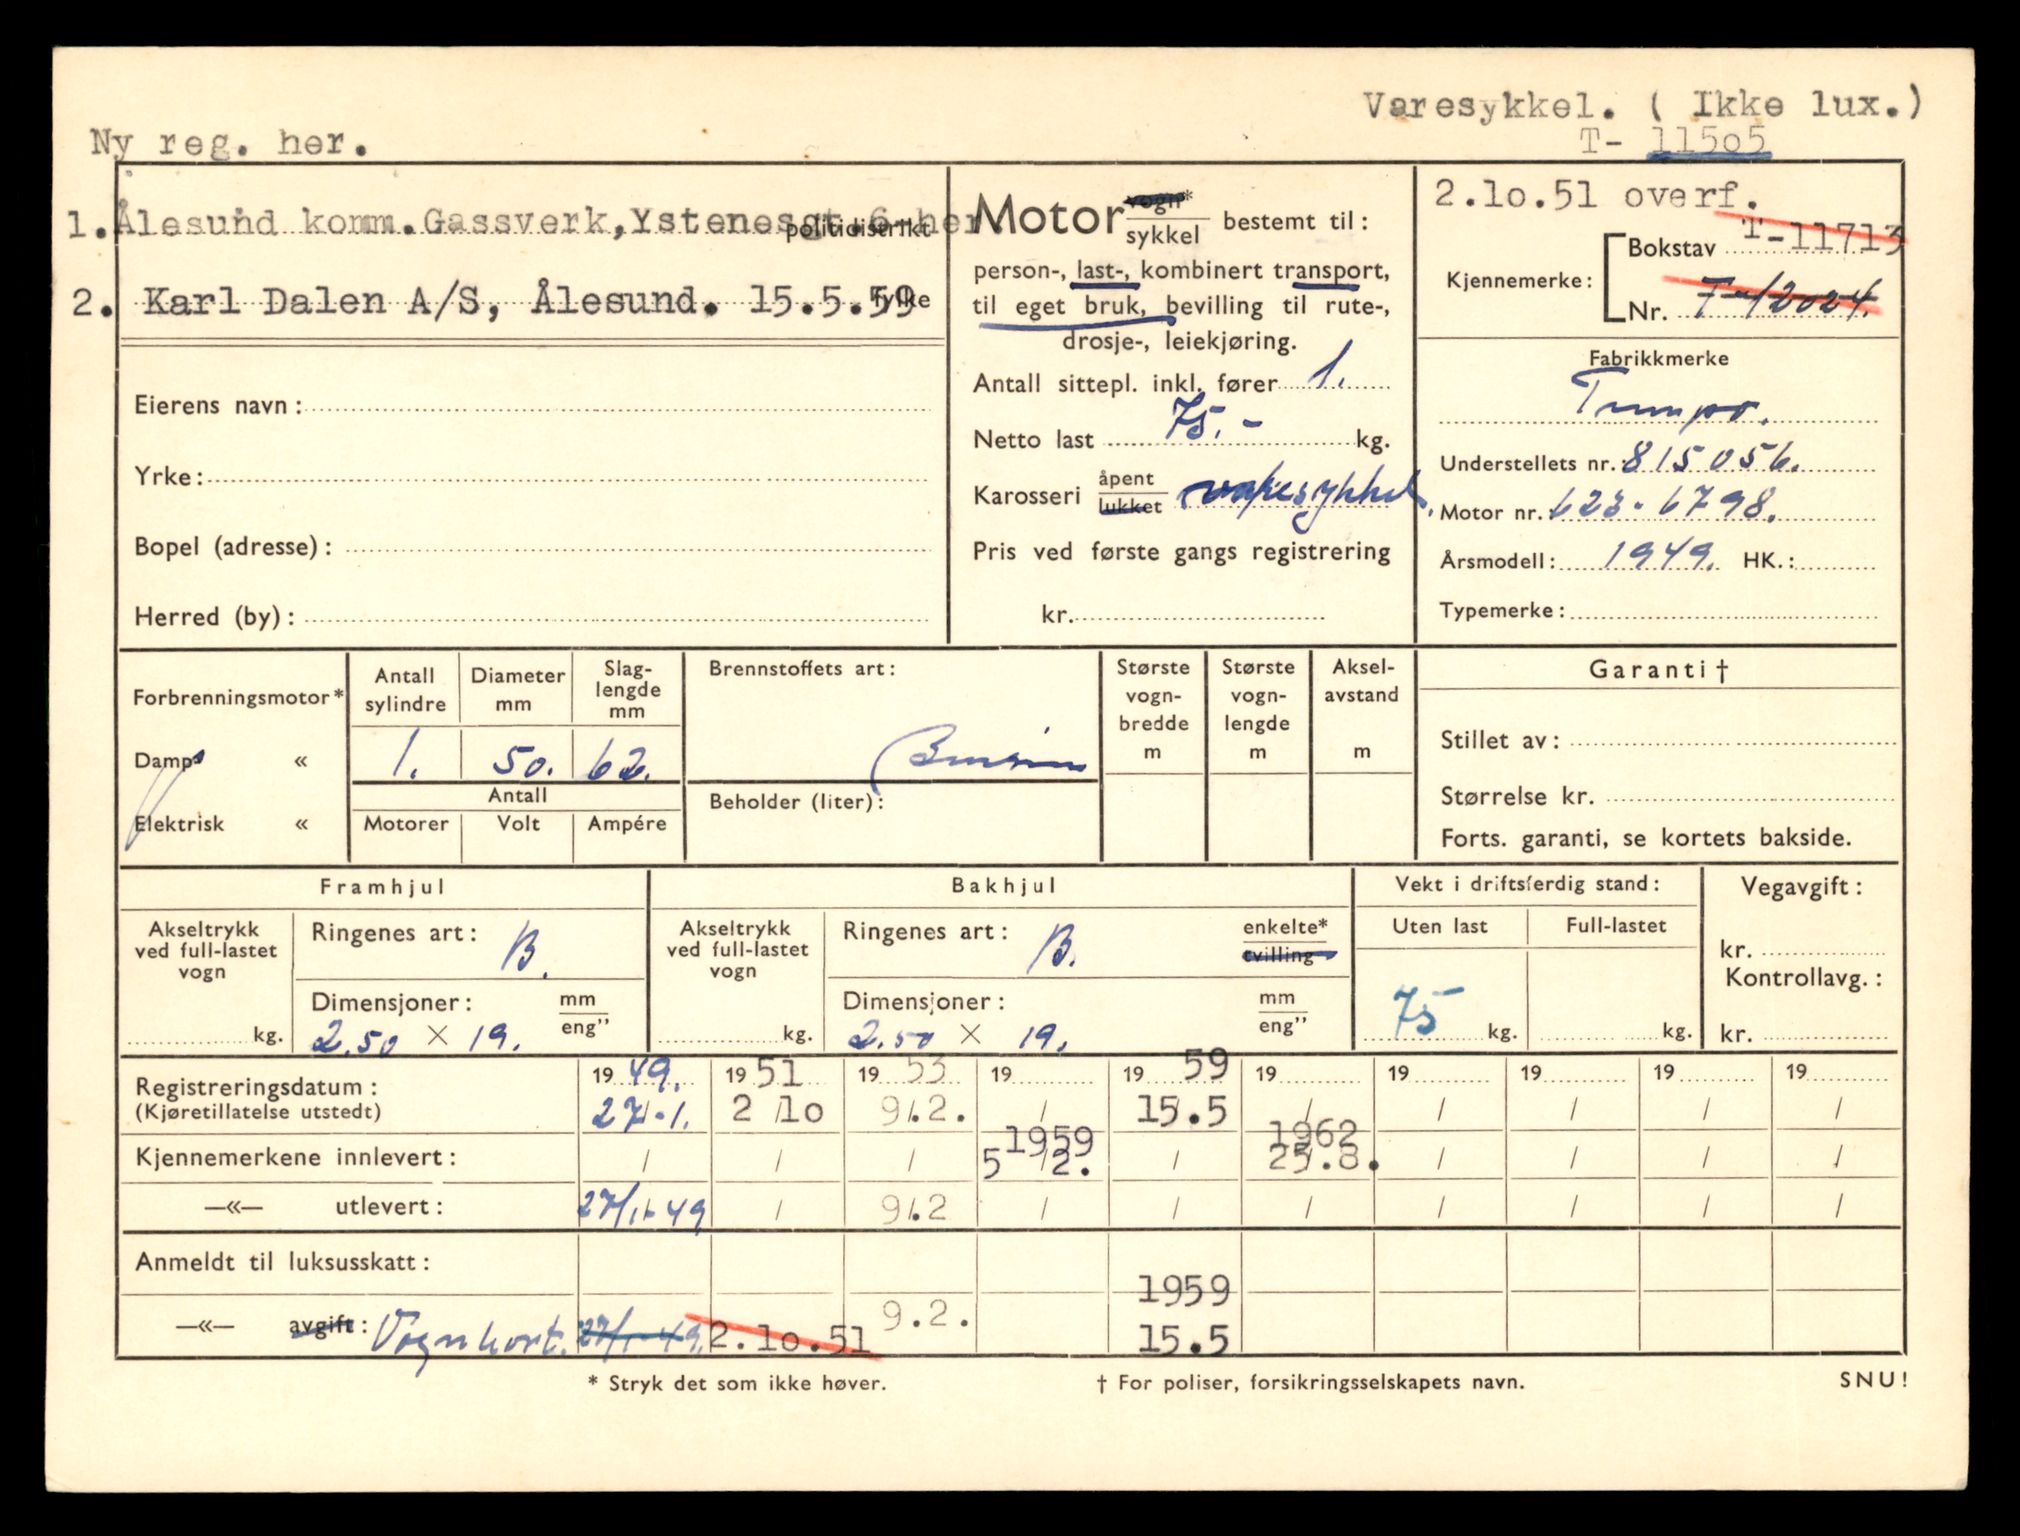 Varesykkel. ( Ikke lux.)
Ny reg. her.
T- 11505
1. Ålesund komm. Gassverk, Ystenesgt. 6 her.
politidistrikt
2. Karl Dalen A/S, Ålesund. 15.5.59
fylke
Eierens navn:
Yrke:
Bopel (adresse):
Herred (by):
Motor vogn* sykkel bestemt til:
person-, last-, kombinert transport,
til eget bruk, bevilling til rute-,
drosje-, leiekjøring.
Antall sittepl. inkl. fører 1.
Netto last 75.- kg.
Karosseri åpent lukket varesykkel.
Pris ved første gangs registrering
kr.
2.10.51 overf.
T-11713
Kjennemerke: Bokstav
Nr. T-12024.
Fabrikkmerke
Tempo.
Understellets nr. 815056.
Motor nr. 623-6798.
Årsmodell: 1949. HK.:
Typemerke:
Forbrenningsmotor*
Damp «
Elektrisk «
Antall sylindre Diameter mm Slag-lengde mm
1. 50. 62.
Antall
Motorer Volt Ampére
Brennstoffets art:
Bensin
Beholder (liter):
Største vogn-bredde m
Største vogn-lengde m
Aksel-avstand m
Garanti †
Stillet av:
Størrelse kr.
Forts. garanti, se kortets bakside.
Framhjul
Akseltrykk ved full-lastet vogn
kg.
Ringenes art: B.
Dimensjoner: mm eng”
2.50 × 19.
Bakhjul
Akseltrykk ved full-lastet vogn
kg.
Ringenes art: B. enkelte* tvilling
Dimensjoner: mm eng”
2.50 × 19.
Vekt i driftsferdig stand:
Uten last Full-lastet
75 kg. kg.
Vegavgift:
kr.
Kontrollavg.:
kr.
Registreringsdatum: 19 49. 19 51 19 53 19 19 59 19 19 19 19 19
(Kjøretillatelse utstedt) 27/-1. 2/10 9/.2. / 15.5 / / / / /
1959 1962
Kjennemerkene innlevert: / / / 5/2. / 25.8. / / / /
—«— utlevert: 27/1-49 / 9/.2 / / / / / / /
Anmeldt til luksusskatt:
1959
—«— avgift: Vognkort. 27/1-49. 2.10.51 9.2. 15.5
* Stryk det som ikke høver.
† For poliser, forsikringsselskapets navn.
SNU!